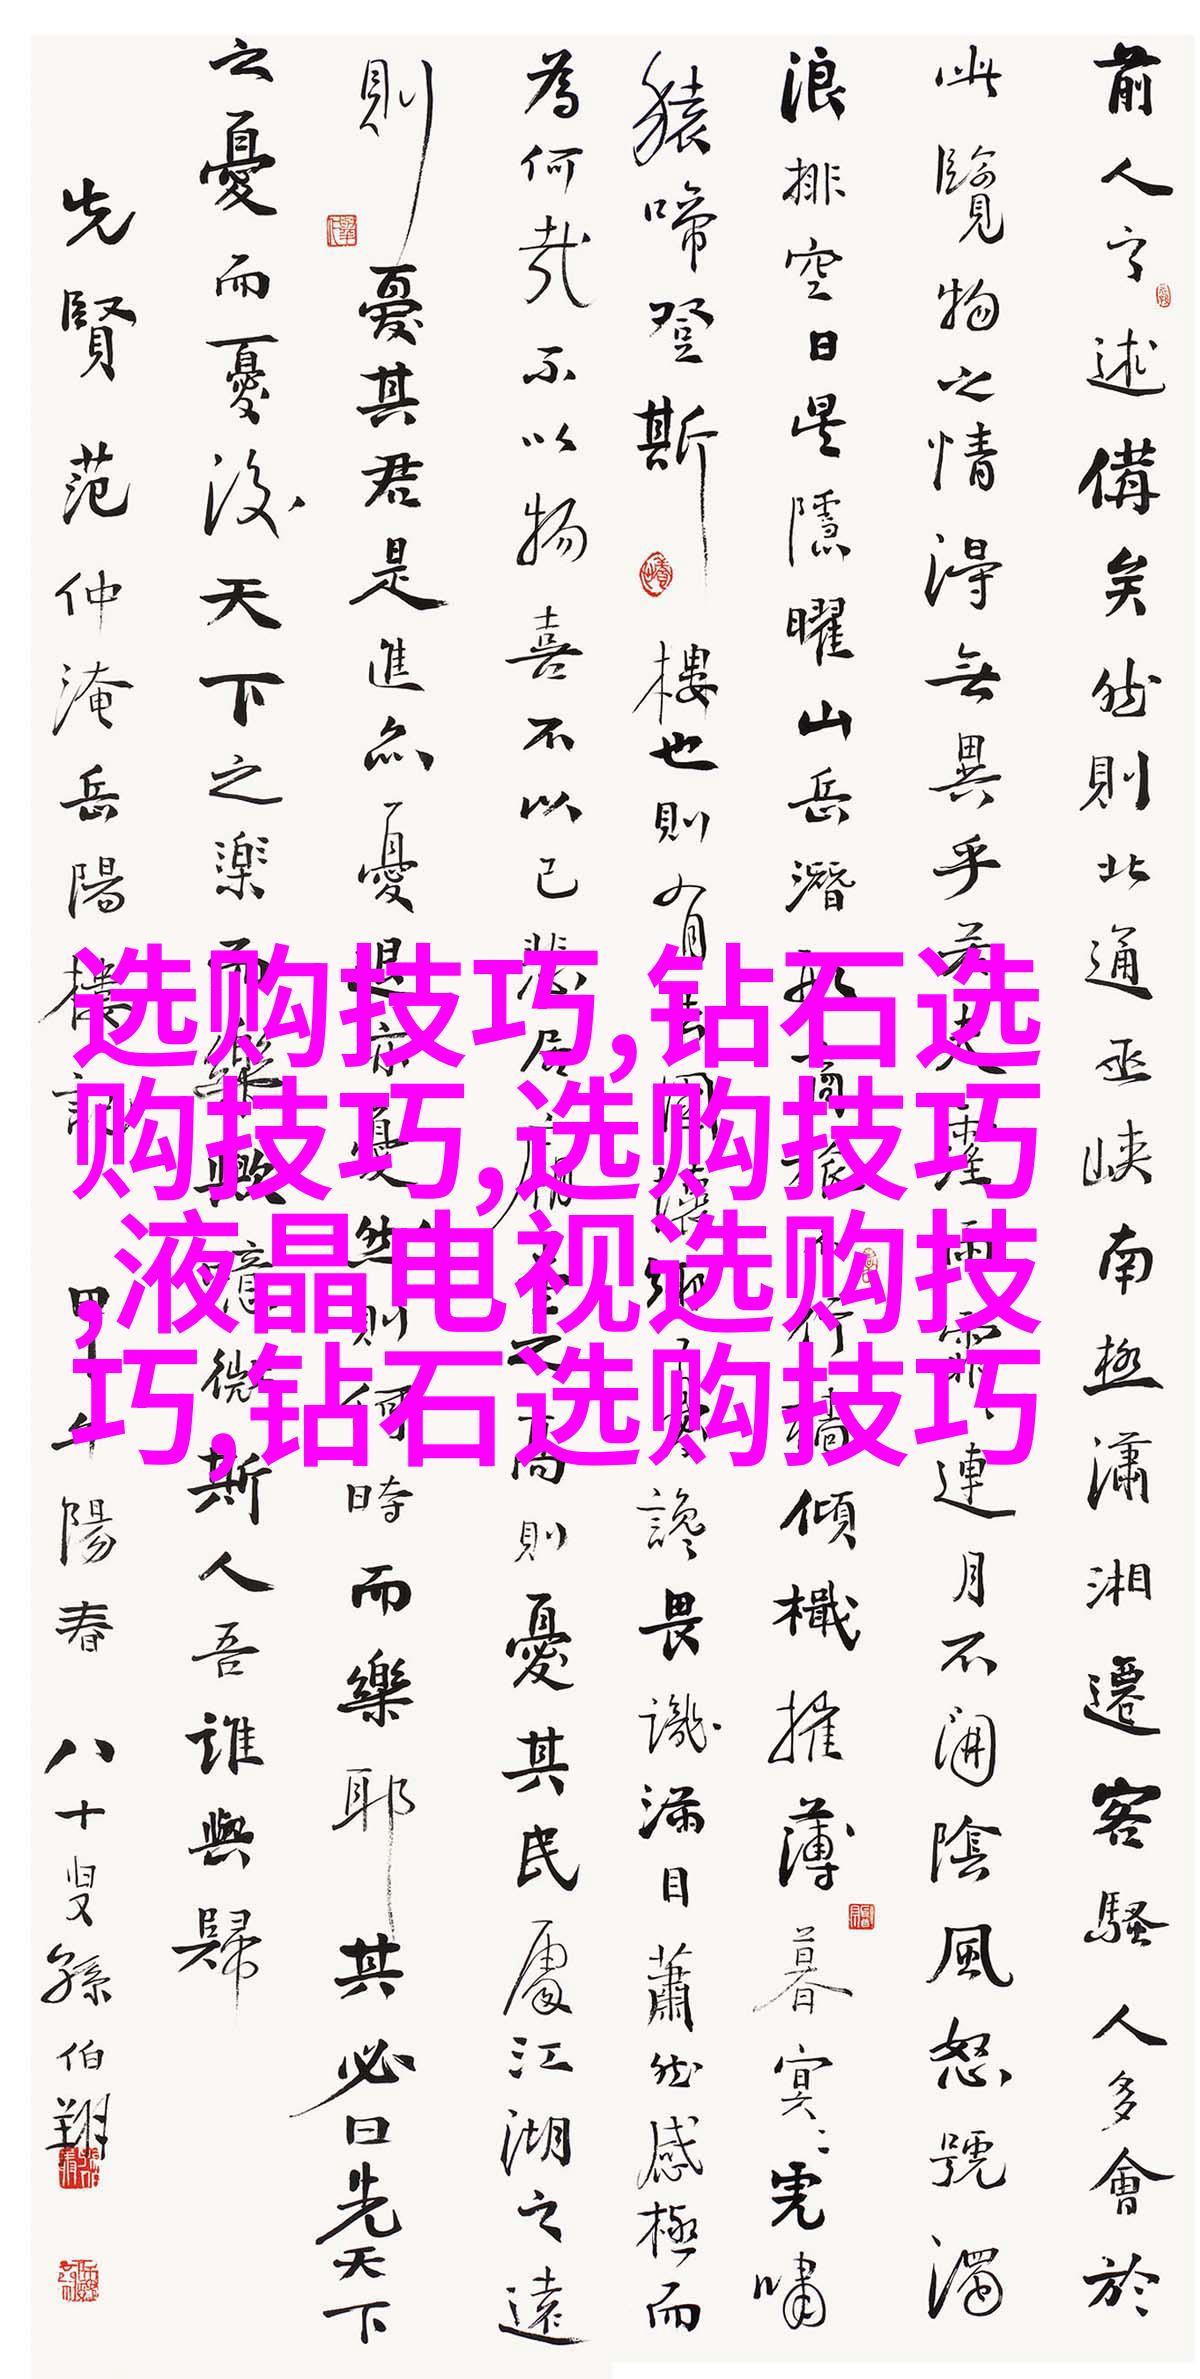 前人之述備矣然則北通巫峽南極瀟湘遷客騷人多會於
此覽物之情得無異乎若夫霪雨霏霏連月不開陰風怒號濁
浪排空日星隱曜山岳潛形商旅不行檣傾檝摧薄暮冥冥虎嘯
猿啼登斯樓也則有去國懷鄉憂讒畏譏滿目蕭然感極而
為何哉不以物喜不以己悲居廟堂之高則憂其民處江湖之遠
則憂其君是進亦憂退亦憂然則何時而樂耶其必曰先天下
之憂而憂後天下之楽而樂歟噫微斯人吾誰與歸
先賢范仲淹岳陽樓記 甲午陽春 八十叟孫伯翔
选购技巧,钻石选
购技巧,选购技巧
,液晶电视选购技
巧,钻石选购技巧